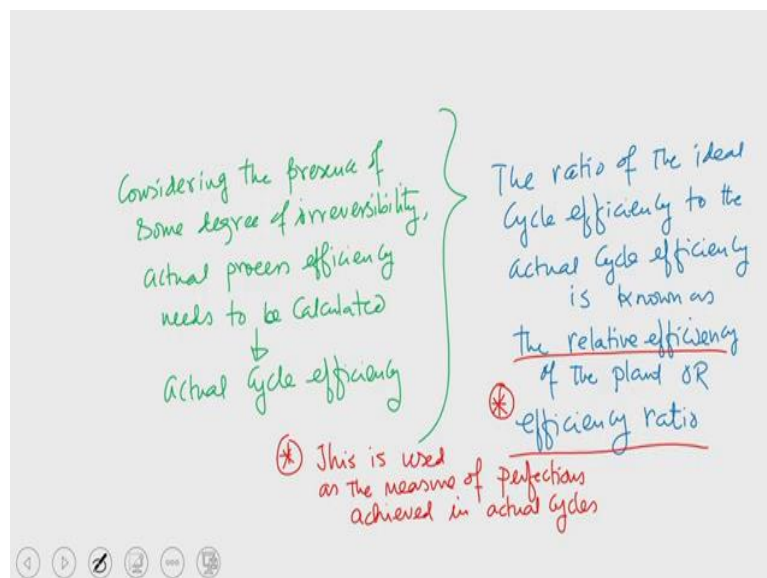 Considering the presence of
some degree of irreversibility,
actual process efficiency
needs to be Calculated
Actual Cycle efficiency
The ratio of the ideal
Cycle efficiency to the
actual Cycle efficiency
is known as
the relative efficiency
of the plant OR
efficiency ratio
* This is used
as the measure of perfections
achieved in actual cycles